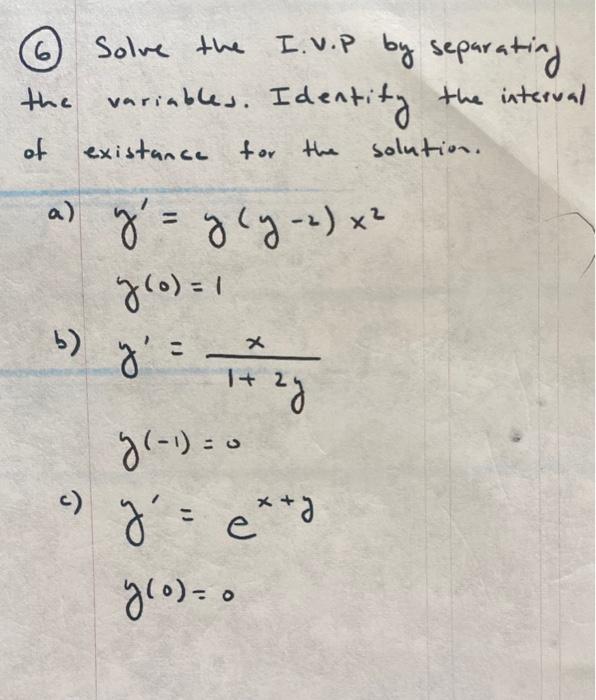 ⑥ Solve the I.V.P by separating
the variables. Identify the interval
of existance for the solution.
a) y' = y(y-2) x²
y(0) = 1
b) y' = x / (1 + 2y)
y(-1) = 0
c) y' = e^(x+y)
y(0) = 0